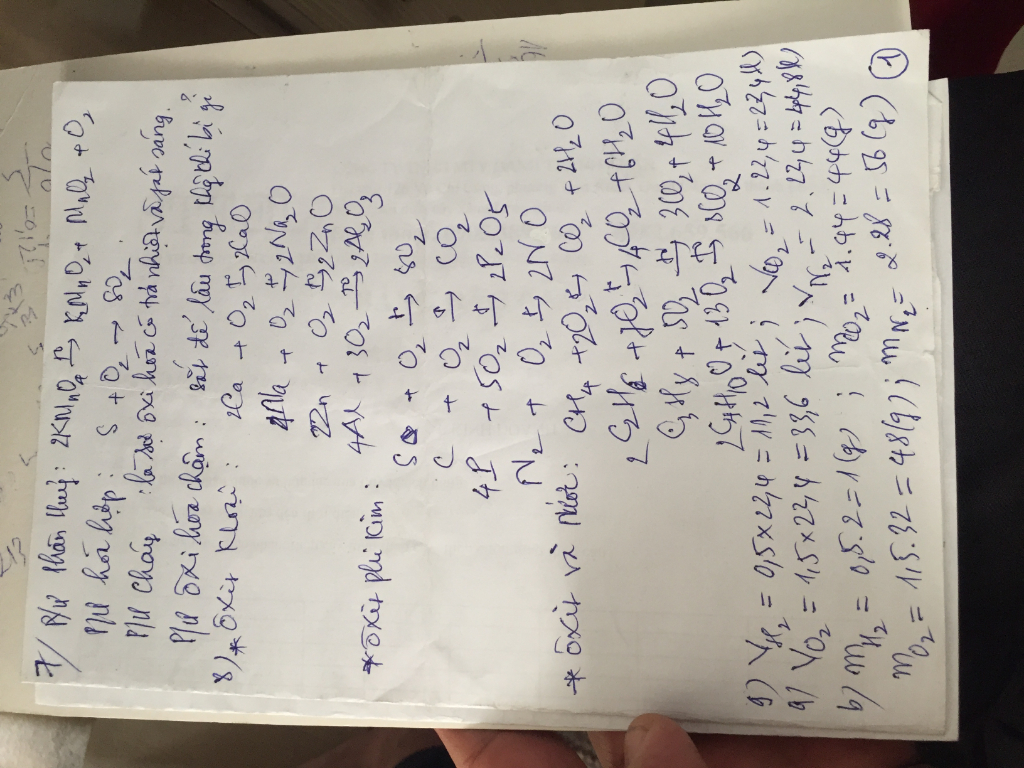 7/ P/ứ phân thuỷ: 2KMnO4 t°→ K2MnO2 + MnO2 + O2
P/ứ hoá hợp: S + O2 → SO2
P/ứ cháy: là sự ôxi hoá có toả nhiệt và phát sáng.
P/ứ ôxi hóa chậm: sắt để lâu trong không khí bị gỉ
8) * ôxit kloại: 2Ca + O2 t°→ 2CaO
4Na + O2 t°→ 2Na2O
2Zn + O2 t°→ 2ZnO
4Al + 3O2 t°→ 2Al2O3
* ôxit phi kim: S + O2 t°→ SO2
C + O2 t°→ CO2
4P + 5O2 t°→ 2P2O5
N2 + O2 t°→ 2NO
* ôxit và nước: CH4 + 2O2 t°→ CO2 + 2H2O
2C2H6 + 7O2 t°→ 4CO2 + 6H2O
C3H8 + 5O2 t°→ 3CO2 + 4H2O
2C4H10 + 13O2 t°→ 8CO2 + 10H2O
9) VH2 = 0,5x22,4 = 11,2 lít; VCO2 = 1.22,4 = 22,4(l)
a) VO2 = 1,5x22,4 = 33,6 lít; VN2 = 2.22,4 = 44,8(l)
b) mH2 = 0,5.2 = 1(g); mCO2 = 1.44 = 44(g)
mO2 = 1,5.32 = 48(g); mN2 = 2.28 = 56(g)
1